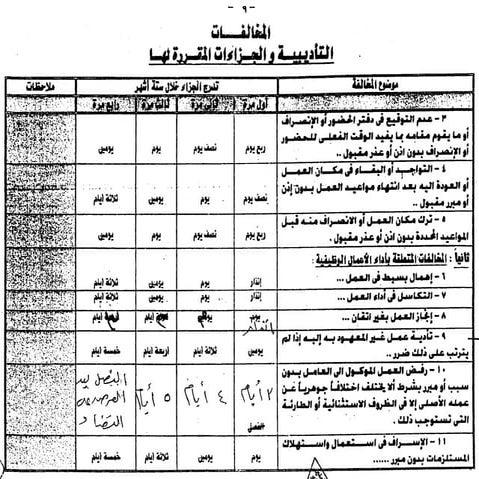 - ٩ -
المخالفات
التأديبية والجزاءات المقررة لها
موضوع المخالفة
تدرج الجزاء خلال ستة أشهر
ملاحظات
أول مرة ثانى مرة ثالث مرة رابع مرة
٣ - عدم التوقيع فى دفتر الحضور أو الإنصراف
أو ما يقوم مقامه بما يفيد الوقت الفعلى للحضور
أو الإنصراف بدون اذن أو عذر مقبول ..
ربع يوم نصف يوم يوم يومين
٤ - التواجيد أو البقاء فى مكان العمل
أو العودة اليه بعد انتهاء مواعيد العمل بدون إذن
أو مبرر مقبول ..
نصف يوم يوم يومين ثلاثة ايام
٥ - ترك مكان العمل أو الانصراف منه قبل
المواعيد المحددة بدون اذن أو عذر مقبول .
ربع يوم نصف يوم يوم يومين
ثانياً : المخالفات المتعلقة بأداء الأعمال الوظيفية :
٦ - إهمال بسيط فى العمل ...
إنذار يوم يومين ثلاثة ايام
٧ - التكاسل فى أداء العمل ..
إنذار يوم يومين ثلاثة ايام
٨ - إنجاز العمل بغير اتقان ...
يوم ايام
٩ - تأدية عمل غير المعهود به إليه إذا لم
يترتب على ذلك ضرر ..
يومين ثلاثة ايام اربعة ايام خمسة ايام
١٠ - رفض العمل الموكول الى العامل بدون
سبب أو مبرر بشرط ألا يختلف اختلافاً جوهرياً عن
عمله الأصلى إلا فى الظروف الاستثنائية أو الطارئة
التى تستوجب ذلك .
٢ أيام ٤ أيام ٥ أيام
١١ - الإسراف فى استعمال واستهلاك
المستلزمات بدون مبرر ......
يوم يومين ثلاثة ايام خمسة ايام